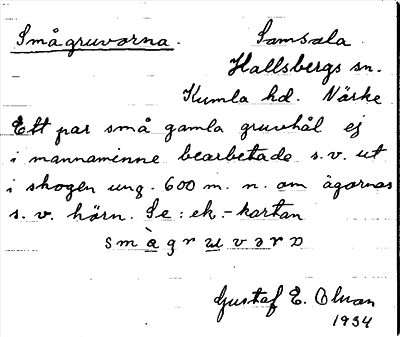 Smågruvorna. Samsala
Hallsbergs sn.
Kumla hd. Närke
Ett par små gamla gruvhål ej
i mannaminne bearbetade s.v. ut
i skogen ung. 600 m. n. om ägornas
s.v. hörn. Se: ek.-kartan
små̀gruvorna
Gustaf E. Olson
1934